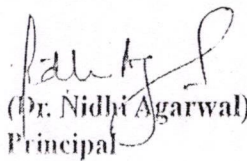 (Dr. Nidhi Agarwal)
Principal